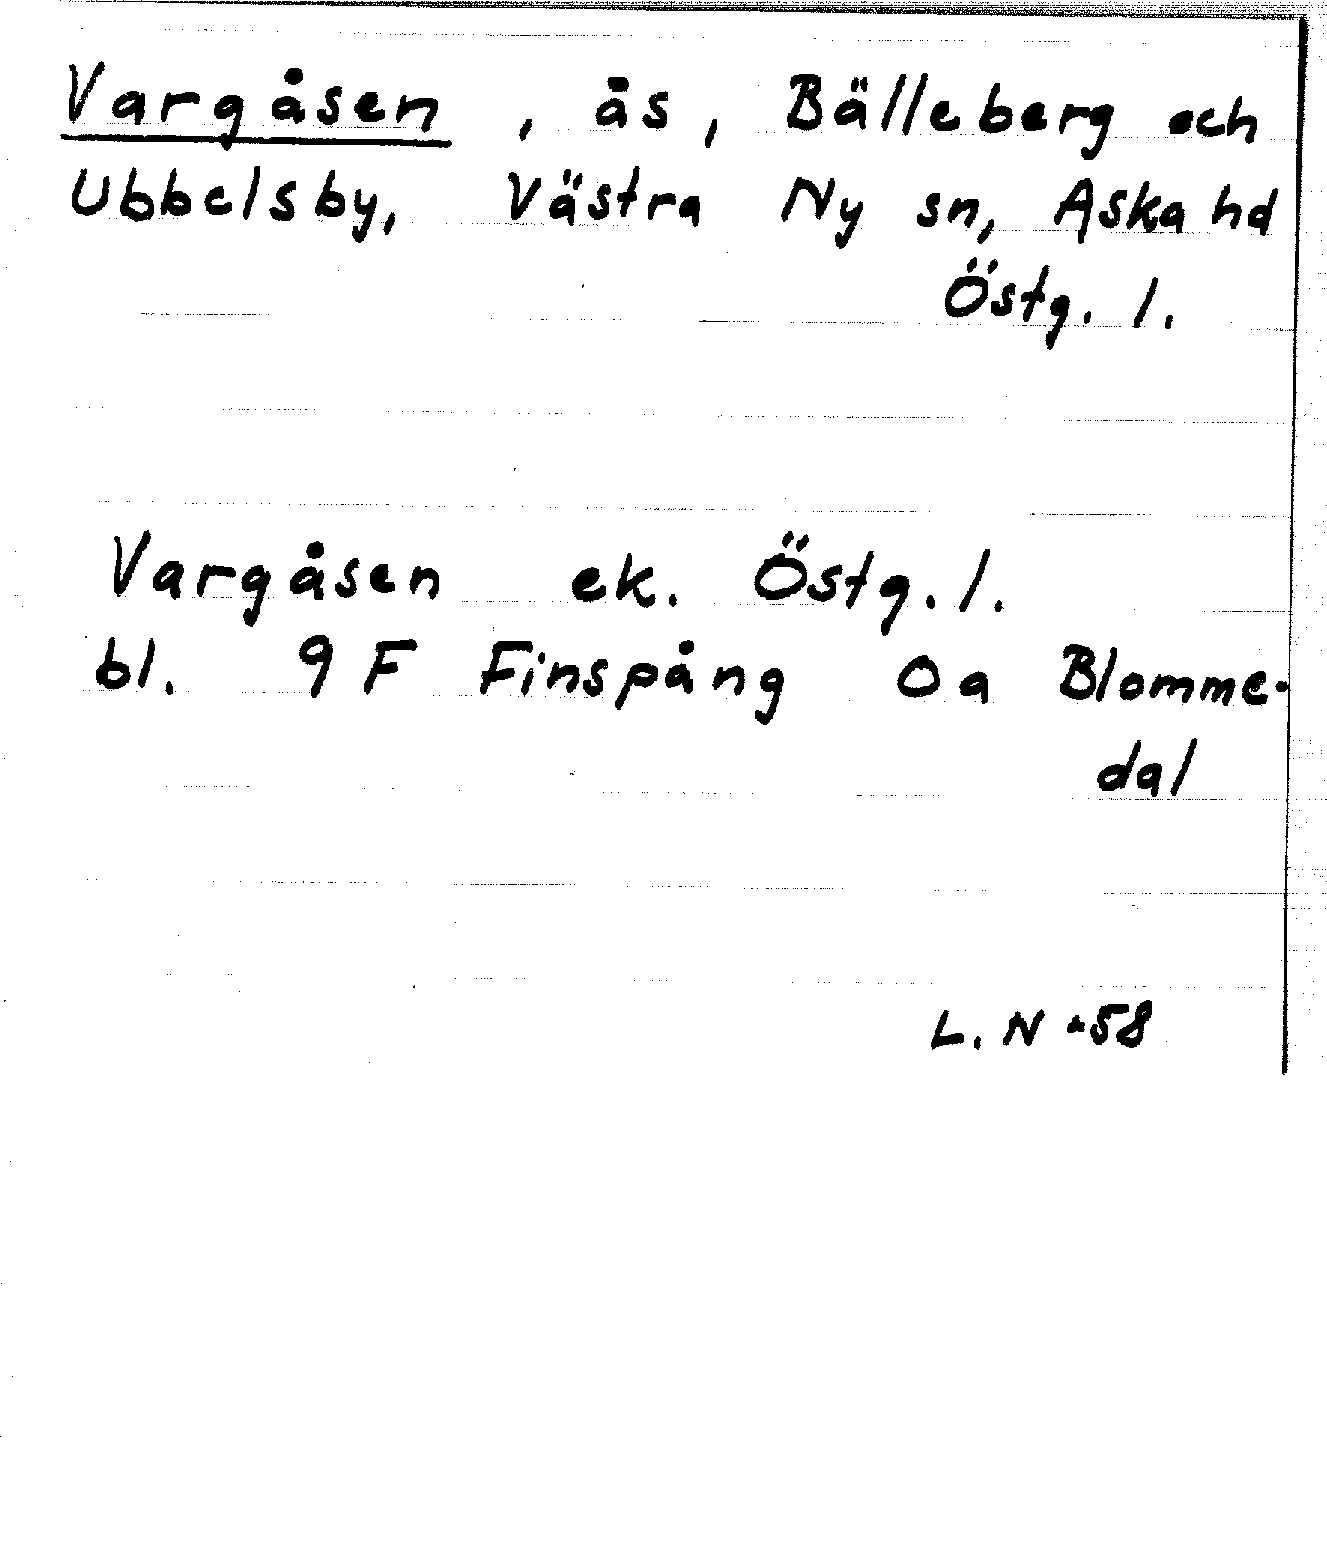 Vargåsen, ås, Bälleberg och
Ubbelsby, Västra Ny sn, Aska hd
Östg. l.
Vargåsen ek. Östg. l.
bl. 9 F Finspång 0a Blomme-
dal
L. N -58